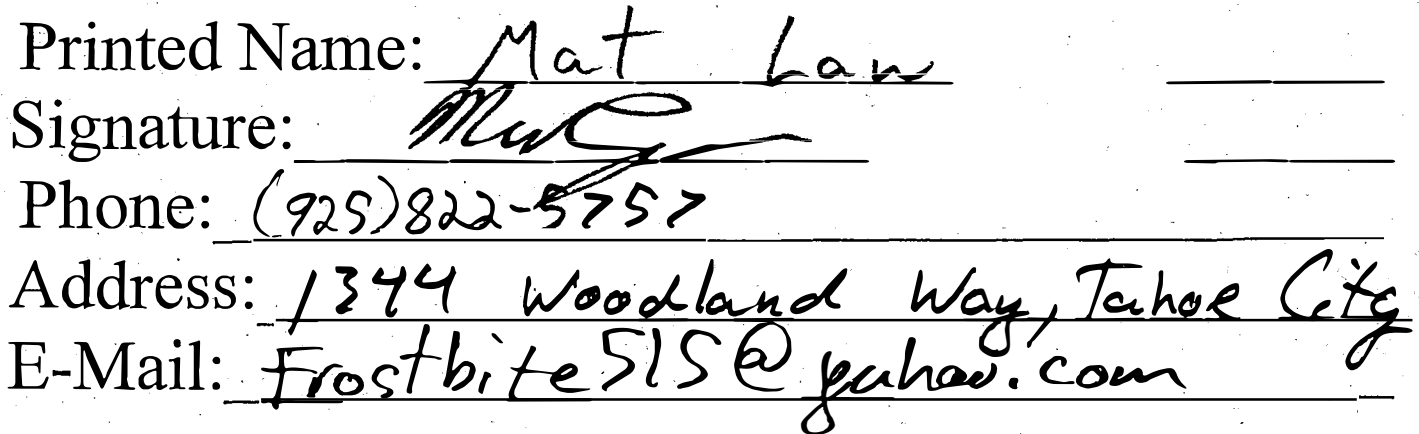 Printed Name: Mat Law
Signature:
Phone: (925)822-5757
Address: 1344 Woodland Way, Tahoe City
E-Mail: Frostbite515@yahoo.com